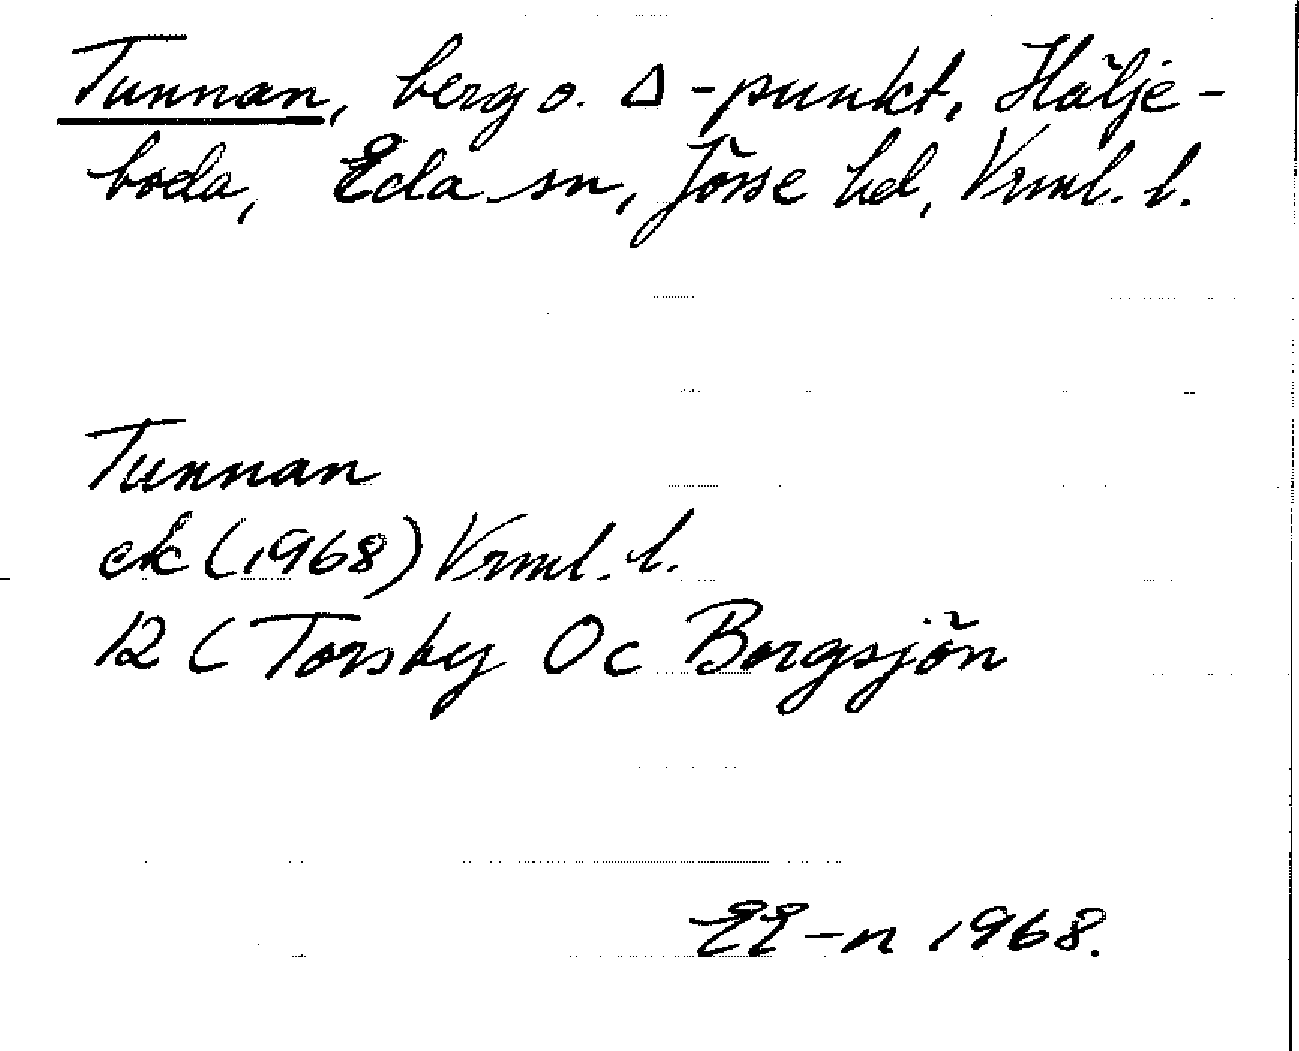 Tunnan, berg o. Δ-punkt, Hälje-
boda, Eda sn, Jösse hd, Vrml. l.
Tunnan
ek (1968) Vrml. l.
12 C Torsby Oc Borgsjön
EE-n 1968.